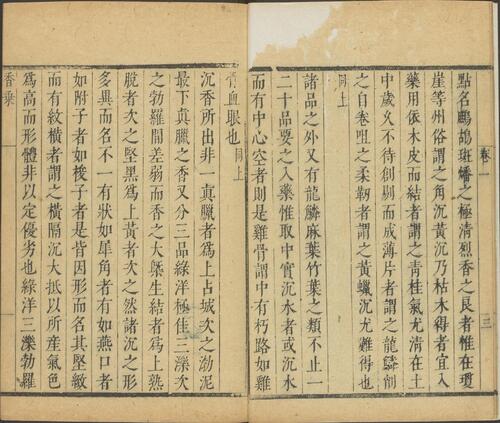 卷一
三
點名鷓鴣斑燔之極清烈香之良者惟在瓊
崖等州俗謂之角沉黃沉乃枯木得者宜入
藥用依木皮而結者謂之青桂氣尤清在土
中歲久不待創剔而成薄片者謂之龍鱗削
之自卷咀之柔靭者謂之黃蠟沉尤難得也
同上
諸品之外又有龍鱗麻葉竹葉之類不止一
二十品要之入藥惟取中實沉水者或沉水
而有中心空者則是雞骨謂中有朽路如雞
骨血眼也同上
沉香所出非一真臘者爲上占城次之渤泥
最下真臘之香又分三品綠洋極佳三濼次
之勃羅間差弱而香之大槩生結者爲上熟
脫者次之堅黑爲上黃者次之然諸沉之形
多異而名不一有狀如犀角者有如燕口者
如附子者如梭子者是皆因形而名其堅緻
而有紋橫者謂之橫隔沉大抵以所産氣色
爲高而形體非以定優劣也綠洋三濼勃羅
香乘